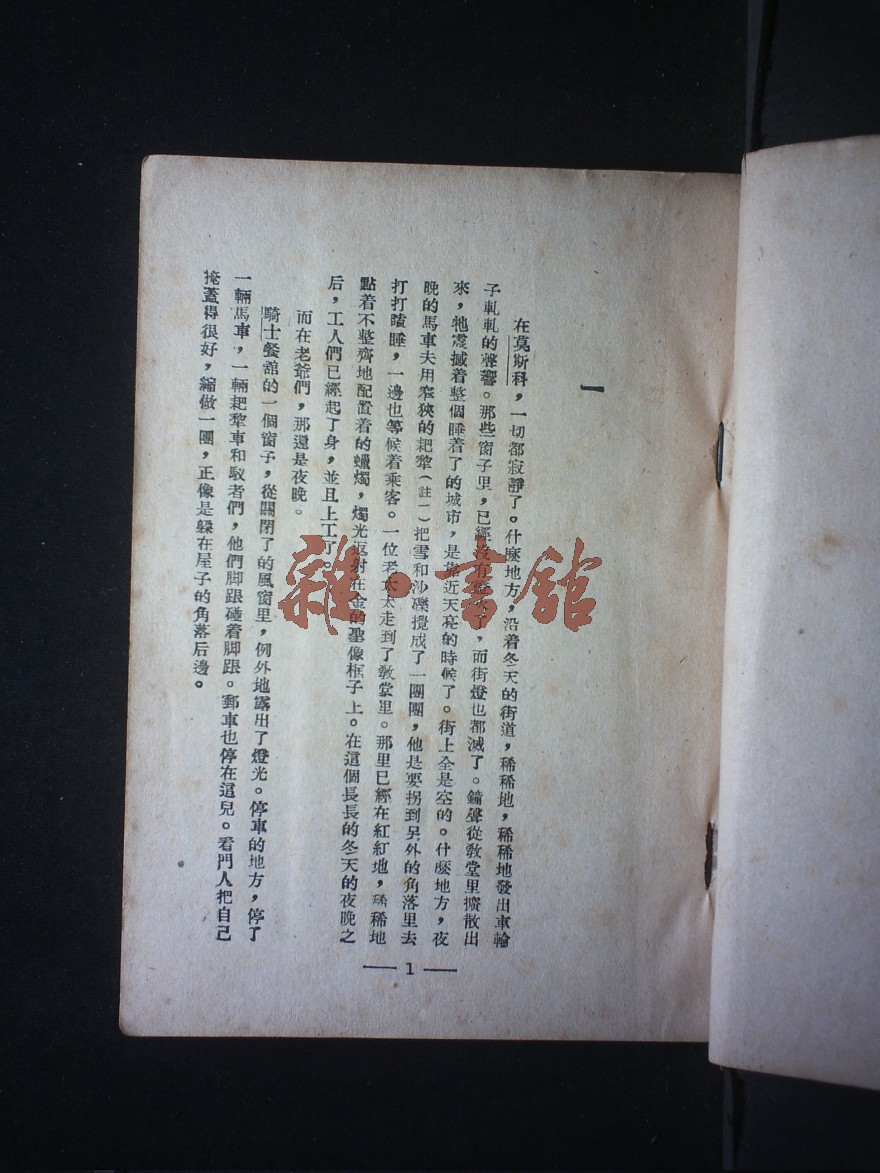 一
在莫斯科，一切都寂靜了。什麼地方，沿着冬天的街道，稀稀地，稀稀地發出車輪
子軋軋的聲響。那些窗子里，已經沒有燈火了，而街燈也都滅了。鐘聲從教堂里擴散出
來，牠震撼着整個睡着了的城市，是靠近天亮的時候了。街上全是空的。什麼地方，夜
晚的馬車夫用窄狹的耙犂（註一）把雪和沙礫攪成了一團團，他是要拐到另外的角落里去
打打瞌睡，一邊也等候着乘客。一位老太太走到了敎堂里。那里已經在紅紅地，稀稀地
點着不整齊地配置着的蠟燭，燭光返射在金的聖像框子上。在這個長長的冬天的夜晚之
后，工人們已經起了身，並且上工了。
而在老爺們，那還是夜晚。
騎士餐舘的一個窗子，從關閉了的風窗里，例外地露出了燈光。停車的地方，停了
一輛馬車，一輛耙犂車和馭者們，他們脚跟碰着脚跟。郵車也停在這兒。看門人把自己
掩蓋得很好，縮做一團，正像是躲在屋子的角落后邊。
1
雜·書舘